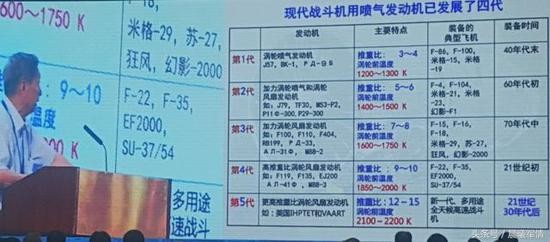 600~1750 K
F-18,
米格-29, 苏-27,
狂风, 幻影-2000
9~10
温度
~2000 K
F-22, F-35,
EF2000,
SU-37/54
多用途
速战斗
现代战斗机用喷气发动机已发展了四代
发动机
主要特点
装备的
典型飞机
装备时间
第1代
涡轮喷气发动机
推重比: 3~4
涡轮前温度
1200~1300 K
F-86, F-100,
米格-15, 米格
-19
40年代末
第2代
加力涡轮喷气和涡轮
风扇发动机
推重比: 5~6
涡轮前温度
1400~1500 K
F-4, F-104,
米格-21, 米格
-23,
幻影-F1
60年代初
第3代
加力涡轮风扇发动机
如: F100, F110, F404,
推重比: 7~8
涡轮前温度
1600~1750 K
F-15, F-16,
F-18,
米格-29, 苏-27,
狂风, 幻影-2000
70年代中
第4代
高推重比涡轮风扇发动机
如: F119, F135, EJ200
推重比: 9~10
涡轮前温度
1850~2000 K
F-22, F-35,
EF2000,
SU-37/54
21世纪初
第5代
更高推重比涡轮风扇发动机
如: 美国IHPTET和VAART
推重比: 12~15
涡轮前温度
2100~2200 K
新一代、多用途
全天候高速战斗
机
21世纪
30年代后
头条号/晨曦军情